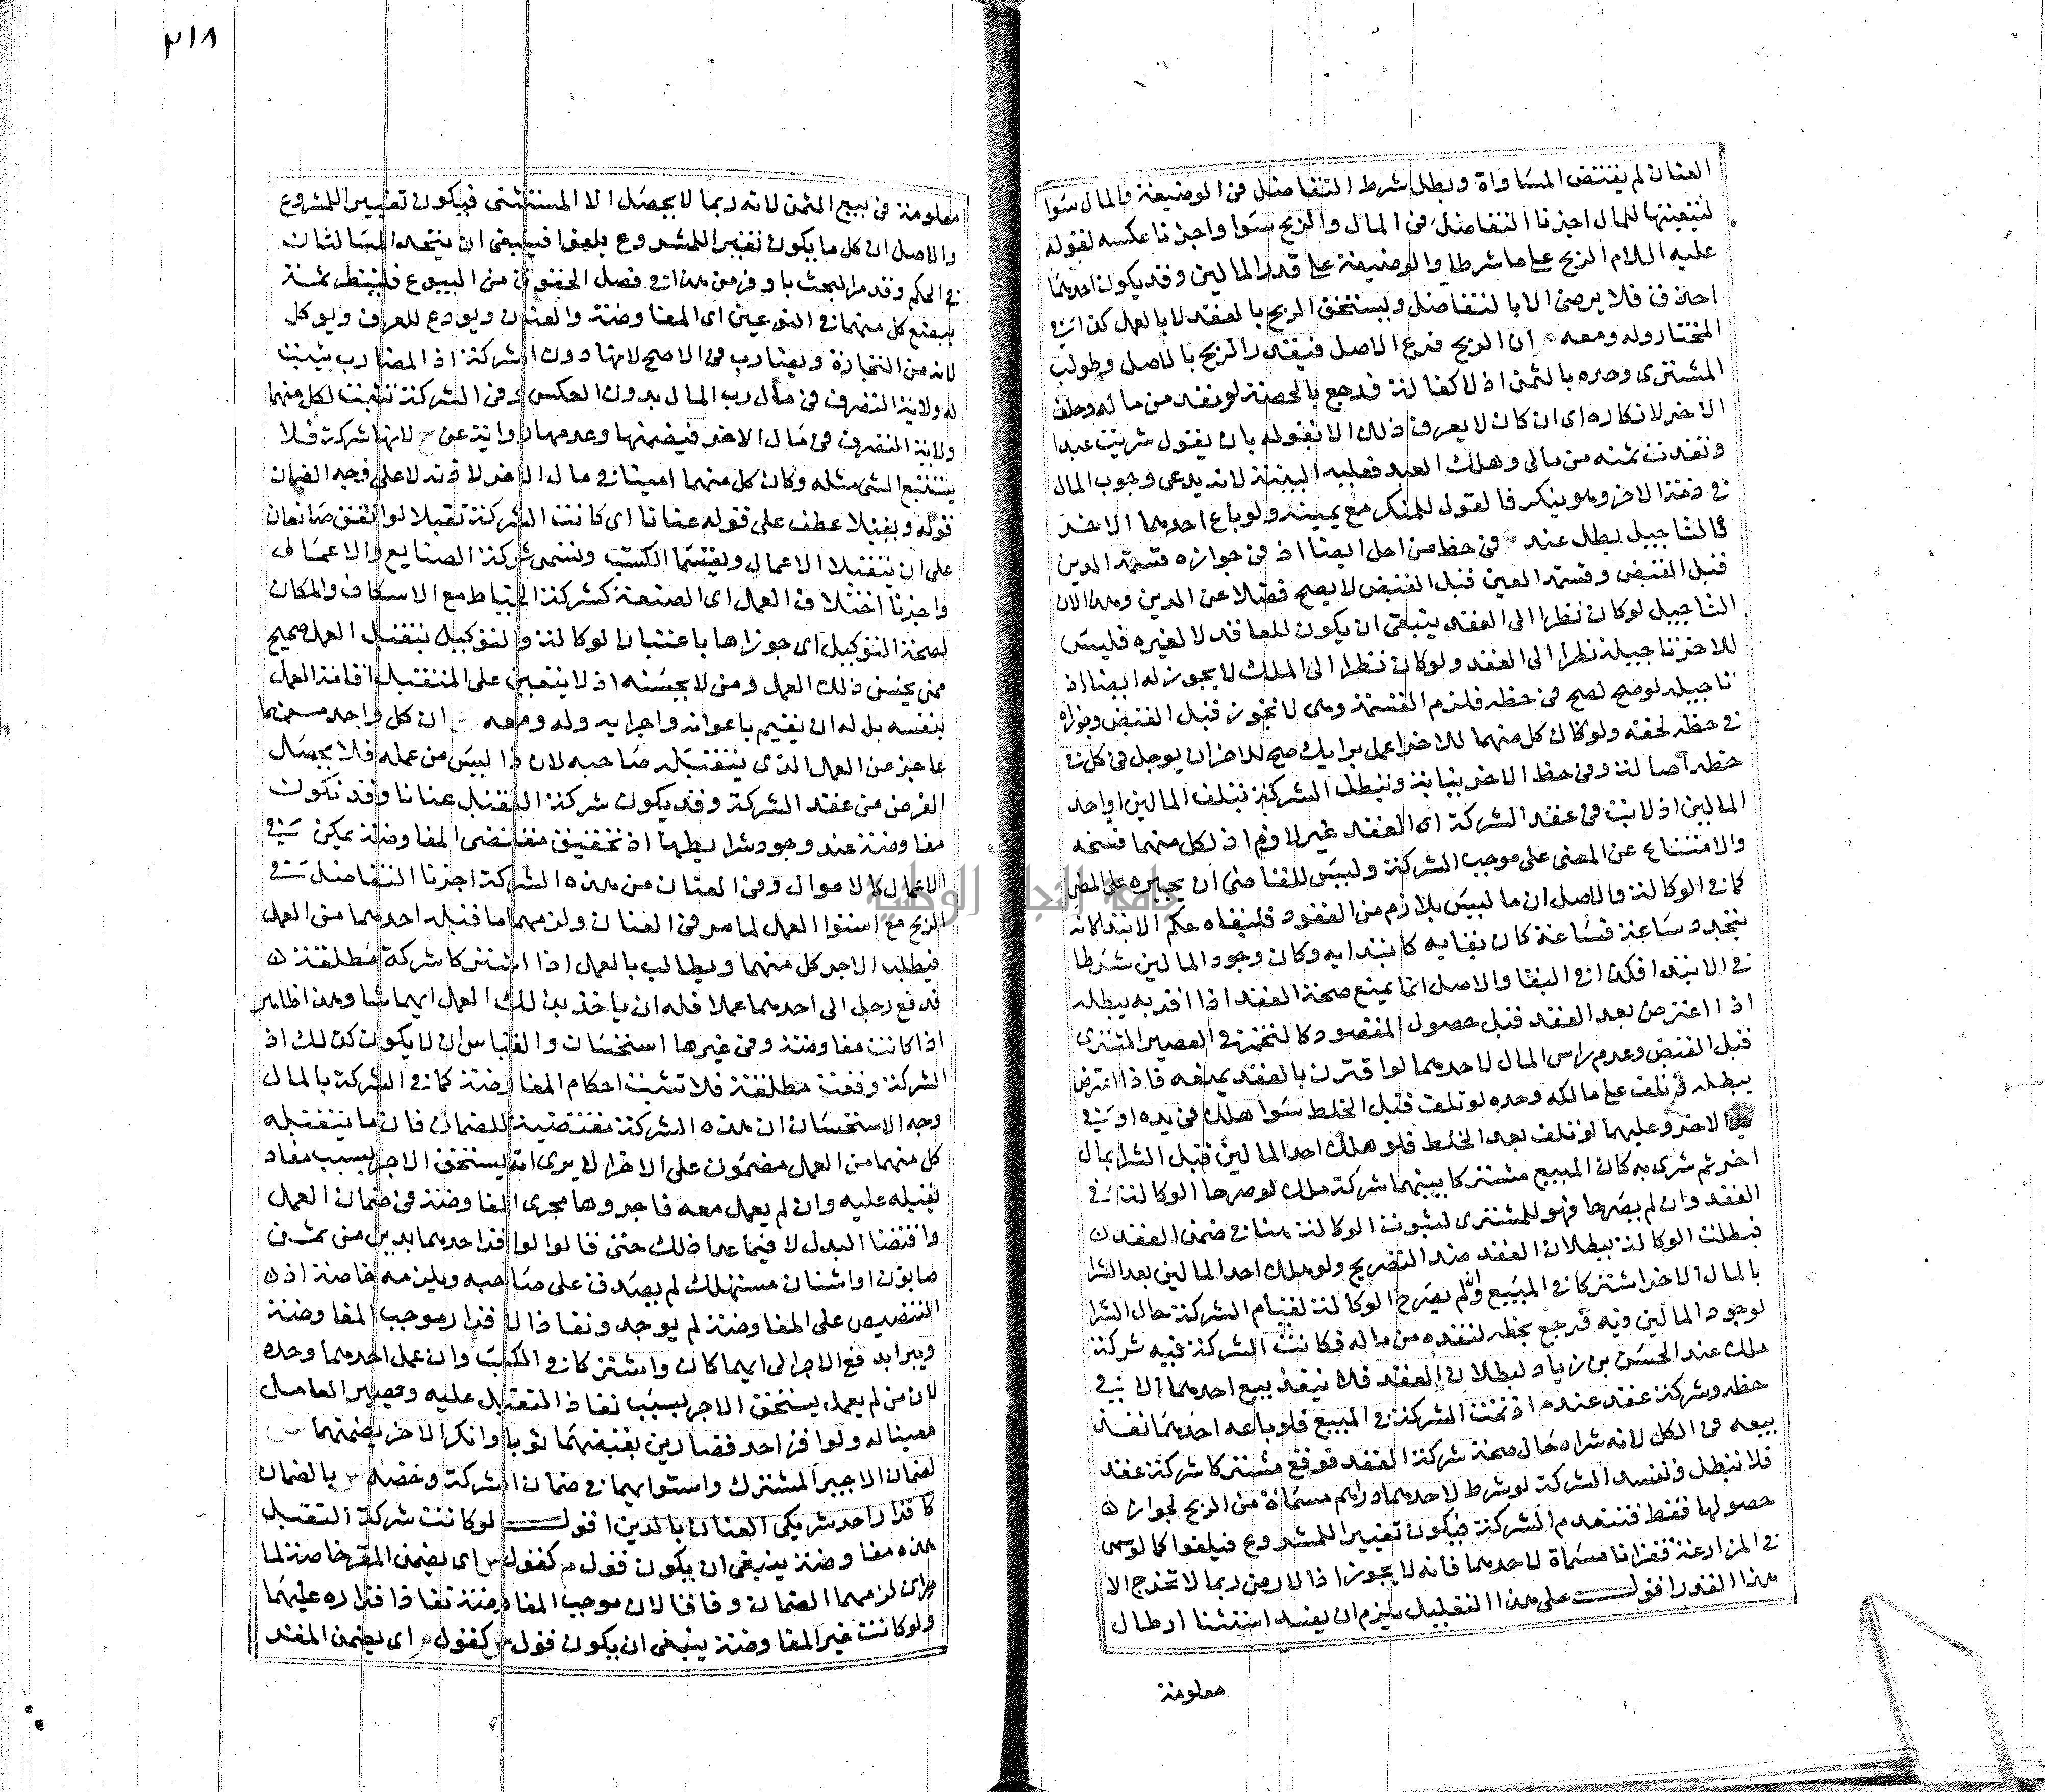 العنان لم يقتض المساواة وبطل شرط التفاضل في الوضيعة والمال سوا
لتبعيتها للمال اجزنا التفاضل في المال والربح سوا واجزنا عكسه لقوله
عليه السلام الربح على ما شرطا والوضيعة على قدر المالين وقد يكون احدهما
احذق فلا يرضى الا بالتفاضل ويستحق الربح بالعقد لا بالعمل كذا في
المختار وله ومعه ان الربح فرع الاصل فيقدر الربح بالاصل وطولب
المشترى وحده بالثمن اذ لا كفالة فرجع بالحصة لو نقد من ماله وحلف
الاخر لانكاره اى ان كان لا يعرف ذلك الا بقوله بان يقول شريت عبدا
ونقدت ثمنه من مالى وهلك العبد فعليه البينة لانه يدعى وجوب المال
في ذمة الاخر وهو ينكر فالقول للمنكر مع يمينه ولو باع احدهما الاخر
فالتاجيل بطل عند في حظ من اجل ايضا اذ في جوازه قسمة الدين
قبل القبض وقسمة العين قبل القبض لا يصح فضلا عن الدين وهذا لان
التاجيل لو كان نظرا الى العقد ينبغى ان يكون للعاقد لا لغيره فليس
للاخر تاجيله نظرا الى العقد ولو كان نظرا الى الملك لا يجوز له ايضا اذ
تاجيله لو صح لصح في حظه فلزم القسمة وهى لا تجوز قبل القبض وجوازه
في حظه لحقه ولو قال كل منهما للاخر اعمل برايك صح للاخر ان يوجل في كل في
حظه اصالة وفي حظ الاخر بنيابة وتبطل الشركة بتلف المالين او احد
المالين اذ لا يثبت في عقد الشركة اى العقد غير لازم اذ لكل منهما فسخه
والامتناع عن المضى على موجب الشركة وليس للقاضى ان يجبره على المضى
كما في الوكالة والاصل ان ما ليس بلازم من العقود فلبقاه حكم الابتدا لانه
يتجدد ساعة فساعة كان بقايه كابتدايه وكان وجود المالين شرطا
في الابتدا فكذا في البقا والاصل انما يمنع صحة العقد اذا اقترن به يبطله
اذا اعترض بعد العقد قبل حصول المقصود كالتخمر في العصير المشترى
قبل القبض وعدم راس المال لاحدهما لو اقترن بالعقد يمنعه فاذا اعترض
يبطله فتلف على مالكه وحده لو تلف قبل الخلط سوا هلك في يده او في
يد الاخر وعليهما لو تلف بعد الخلط فلو هلك احد المالين قبل الشرا بمال
اخر ثم شرى به كان المبيع مشتركا بينهما شركة ملك لو صرحا الوكالة في
العقد وان لم يصرحا فهو للمشترى لثبوت الوكالة هنا في ضمن العقد
فبطلت الوكالة ببطلان العقد ضد التصريح ولو هلك احد المالين بعد الشرا
بالمال الاخر اشتركا في المبيع وان لم يصرح الوكالة لقيام الشركة حال الشرا
لوجود المالين وفيه فرجع بحظه لنقده من ماله فكانت الشركة فيه شركة
ملك عند الحسن بن زياد لبطلان العقد فلا ينفذ بيع احدهما الا في
حظه وشركة عقد عند اذ تمت الشركة في المبيع فلو باعه احدهما نفذ
بيعه في الكل لانه شراه حال صحة شركة العقد فوقع مشتركا شركة عقد
فلا تبطل وتفسد الشركة لو شرط لاحدهما دراهم مسماة من الربح لجواز
حصولها فقط فتنعدم الشركة فيكون تغييرا للمشروع فيلغوا كما لو سمى
في المزارعة قفزانا مسماة لاحدهما فانه لا يجوز اذ الارض ربما لا تخرج الا
هذا القدر اقول على هذا التعليل يلزم ان يفسد استثنا ارطال
معلومة
٢١٨
معلومة في بيع الثمن لانه ربما لا يحصل الا المستثنى فيكون تغييرا للمشروع
والاصل ان كل ما يكون تغييرا للمشروع يلغوا فينبغى ان يتحد المسالتان
في الحكم وقد مر البحث باوفر من هذا في فصل الحقوق من البيوع فلينظر ثمة
يبضع كل منهما في النوعين اى المفاوضة والعنان ويودع للعرف ويوكل
لانه من التجارة ويضارب في الاصح لانها دون الشركة اذ المضارب يثبت
له ولاية التصرف في مال رب المال بدون العكس وفي الشركة تثبت لكل منهما
ولاية التصرف في مال الاخر فيضمنها وعدمها رواية عن لانها شركة فلا
يستتبع الشى مثله وكان كل منهما امينا في مال الاخر لاذنه لا على وجه الضمان
قوله وبقبلا عطف على قوله عنانا اى كانت الشركة تقبلا لو اتفق صانعان
على ان يتقبلا الاعمال ويقتسما الكسب وتسمى شركة الصنايع والاعمال
واجزنا اختلاف العمل اى الصنعة كشركة الخياط مع الاسكاف والمكان
لصحة التوكيل اى جوازها باعتبار الوكالة والتوكيل بتقبل العمل صحيح
ممن يحسن ذلك العمل ومن لا يحسنه اذ لا يتعين على المتقبل اقامة العمل
بنفسه بل له ان يقيم باعوانه واجرايه وله ومعه ان كل واحد منهما
عاجز عن العمل الذى يتقبله صاحبه لان ذا ليس من عمله فلا يحصل
الغرض من عقد الشركة وقد يكون شركة التقبل عنانا وقد تكون
مفاوضة عند وجود شرايطها اذ تحقيق مقتضى المفاوضة يمكن في
الاعمال كالاموال وفي العنان من هذه الشركة اجزنا التفاضل في
الربح مع استوا العمل لما مر في العنان ولزمهما ما قبله احدهما من العمل
فيطلب الاجر كل منهما ويطالب بالعمل اذا اشتركا شركة مطلقة
فدفع رجل الى احدهما عملا فله ان ياخذ بذلك العمل ايهما شا وهذا ظاهر
اذا كانت مفاوضة وفي غيرها استحسان والقياس ان لا يكون كذلك اذ
الشركة وقعت مطلقة فلا تثبت احكام المفاوضة كما في الشركة بالمال
وجه الاستحسان ان هذه الشركة مقتضية للضمان فان ما يتقبله
كل منهما من العمل مضمون على الاخر الا يرى انه يستحق الاجر بسبب نفاذ
تقبله عليه وان لم يعمل معه فاجروها مجرى المفاوضة في ضمان العمل
واقتضا البدل لا فيما عدا ذلك حتى قالوا لو اقر احدهما بدين من ثمن
صابون او اشنان مستهلك لم يصدق على صاحبه ويلزمه خاصة اذ
التنصيص على المفاوضة لم يوجد ونفاذ الاقرار موجب المفاوضة
ويبرا بدفع الاجر الى ايهما كان واشتركا في الكسب وان عمل احدهما وحده
لان من لم يعمل يستحق الاجر بسبب نفاذ التقبل عليه ويصير العامل
معينا له ولو اقر احد قصارين بقبضهما ثوبا وانكر الاخر يضمنهما
لضمان الاجير المشترك واستوايهما في ضمان الشركة وخصه بالضمان
كاقرار احد شريكى العنان بالدين اقول لو كانت شركة التقبل
هذه مفاوضة ينبغى ان يكون قول كقول اى يضمن المقر خاصة لما
مر ان لزمهما الضمان وفاقا لان موجب المفاوضة نفاذ اقراره عليهما
ولو كانت غير المفاوضة ينبغى ان يكون قول كقول اى يضمن المقر